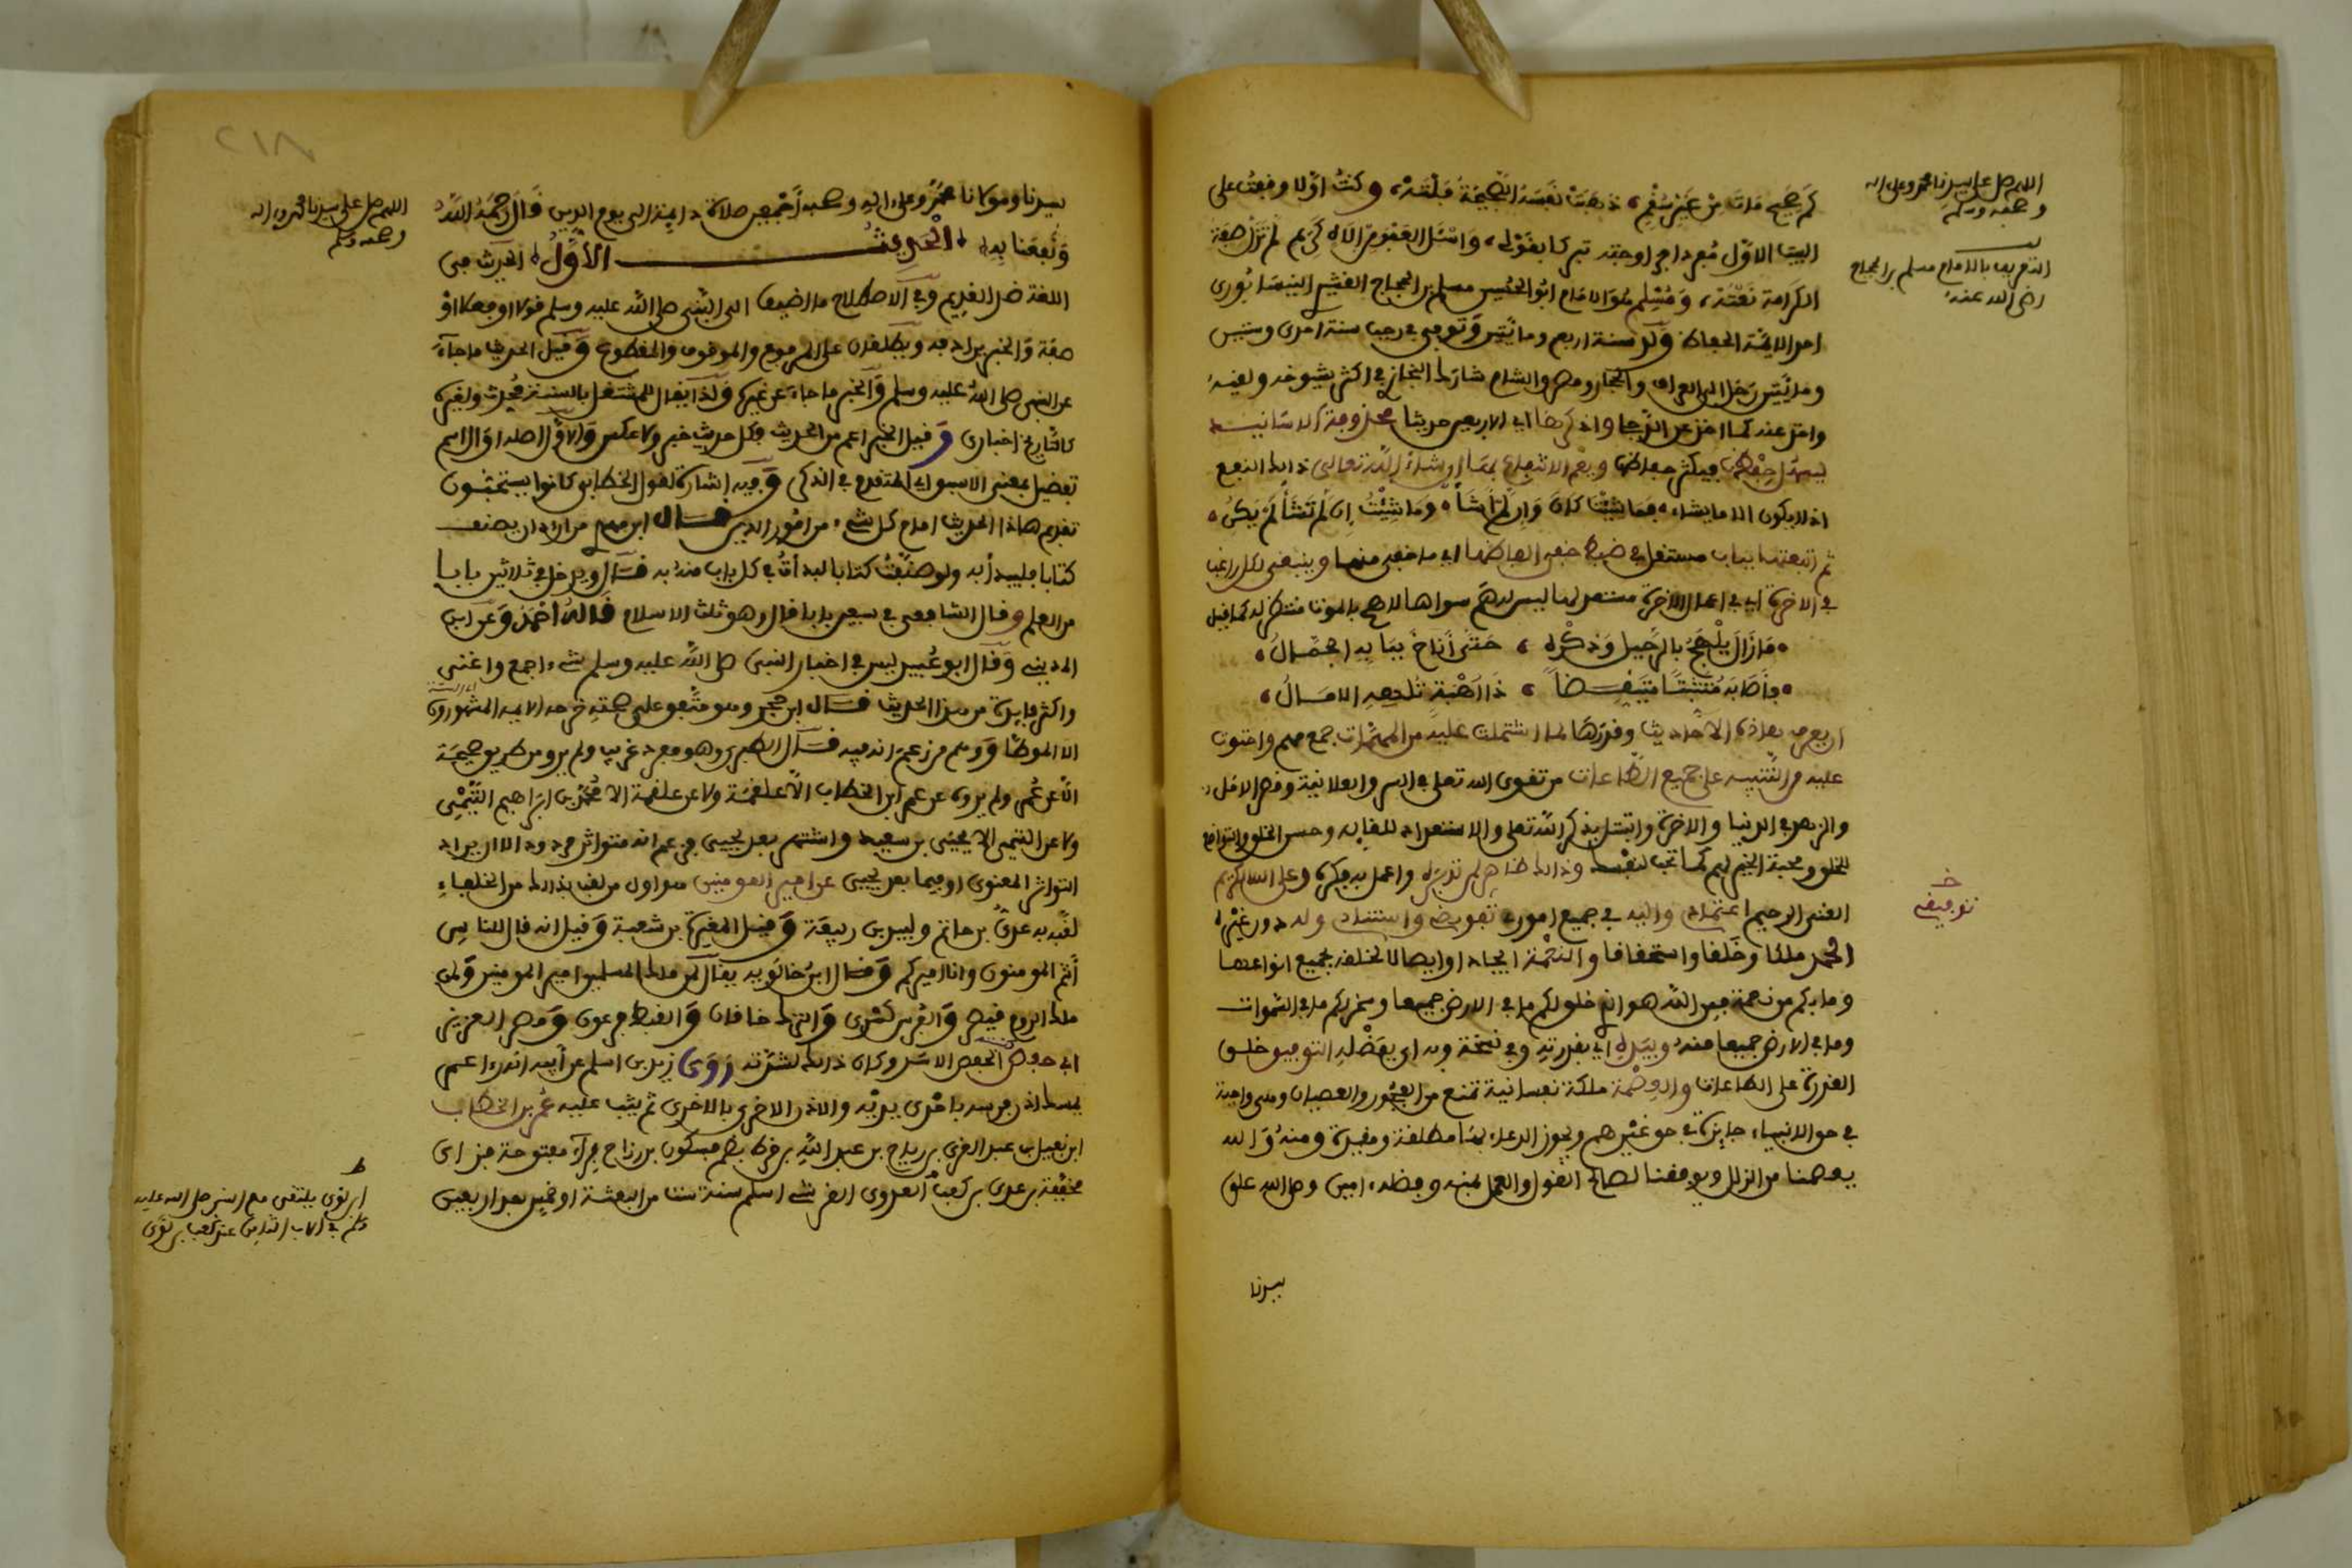 كم صحيح مات من غير سقم، ذهبت نفسه الصحيحة فلتة، وكنت أولا وقعت على
البيت الاول مفردا فراوحته تبركا بقوله، واسئل العفو من الاه كريم لم تزل صفة
الكرامة نعته، ومسلم هو الامام ابو الحسين مسلم بن الحجاج القشيري النيسابوري
احد الايمة الحفاظ ولد سنة اربع ومائتين وتوفي في رجب سنة احدى وستين
ومائتين رحل الى العراق والحجاز ومصر والشام شارك البخاري في اكثر شيوخه ولقيه
واخذ عنه كما اخذ عن الزجا واذكرها اي الاربعين حديثا محذوفة الاسانيد
ليسهل حفظها فيكثر حفاظها ويعم الانتفاع بها ان شاء الله تعالى ذالك النفع
اذ لا يكون الا ما يشاء، فما شئت كان وان لم اشأ، وما شئت ان لم تشأ لم يكن،
ثم اتبعتها بباب مستقل في ضبط خفي الفاظها اي ما خفي منها وينبغي لكل راغب
في الاخرة اي في اعمال الاخرة مستعد لها ليس له هم سواها لاهج بالموت منتظر له كما قيل
مازال يلهج بالرحيل وذكره، حتى أناخ ببابه الجمال،
فأصابه متثبتا متيقظا، ذا اهبة لم تلهه الامال،
ان يعرف هاذه الاحاديث وقدرها لما اشتملت عليه من المهمات جمع مهم واحتوت
عليه من التنبيه على جميع الطاعات من تقوى الله تعلى في السر والعلانية وقصر الامل
والزهد في الدنيا والاخرة والتبتل بذكر الله تعلى والاستعداد للقايه وحسن الخلق والتواضع
للخلق ومحبة الخير لهم كما تحب لنفسك وذالك ظاهر لمن تدبره واعمل به فكره وعلى الله الكريم
الغني الرحيم اعتمادي واليه في جميع امورى تفويضي واستنادى وله دون غيره
الحمد ملكا وخلقا واستحقاقا والنعمة ايجادا وايصالا لخلقه بجميع انواعها
وما بكم من نعمة فمن الله هو الذي خلق لكم ما في الارض جميعا وسخر لكم ما في السموات
وما في الارض جميعا منه وبيده اي بقدرته وفي نسخة وبه اي بفضله التوفيق خلق
القدرة على الطاعات والعصمة ملكة نفسانية تمنع من الفجور والعصيان وهي واجبة
في حق الانبياء جايزة في حق غيرهم ويجوز الدعاء بها مطلقة ومقيدة ومنه والله
يعصمنا من الزلل ويوفقنا لصالح القول والعمل بمنه وفضله امين وصل الله على
سيدنا
اللهم صل على سيدنا محمد وعلى اله
وصحبه وسلم
التعريف بالامام مسلم بن الحجاج
رضي الله عنه
خ
توفيقي
٢١٨
سيدنا ومولانا محمد وعلى اله وصحبه أجمعين صلاة دايمة الى يوم الدين قال رحمه الله
ونفعنا به الحديث الأول الحديث في
اللغة ضد القديم وفي الاصطلاح ما اضيف الى النبي صلى الله عليه وسلم قولا او فعلا او
صفة والخبر يرادفه ويطلقان على المرفوع والموقوف والمقطوع وقيل الحديث ما جاء
عن النبي صلى الله عليه وسلم والخبر ما جاء عن غيره ولذا يقال للمشتغل بالسنة محدث ولغيره
كالتاريخ اخباري وقيل الخبر اعم من الحديث فكل حديث خبر ولا عكس والاول اصله اوال اسم
تفضيل بمعنى الاسبق اي المتقدم في الذكر وفيه إشارة لقول الخطابي كانوا يستحبون
تقديم هاذا الحديث امام كل شيء من امور الدين قال ابن مهدي من اراد ان يصنف
كتابا فليبدأ به ولو صنفت كتابا لبدأت في كل باب منه به قال ويدخل في ثلاثين بابا
من العلم وقال الشافعي في سبعين بابا قال وهو ثلث الاسلام قاله أحمد وعن ابن
المديني وقال ابو عبيد ليس في اخبار النبي صلى الله عليه وسلم شيء اجمع واغنى
واكثر فايدة من هذا الحديث قال ابن حجر وهو متفق على صحته خرجه الايمة المشهورون
الا الموطأ ووهم من زعم انه فيه قال الطبري وهو مفرد غريب ولم يرو من طريق صحيحة
الا عن عمر ولم يروه عن عمر ابن الخطاب الا علقمة ولا عن علقمة الا محمد بن ابراهيم التيمي
ولا عن التيمي الا يحيى بن سعيد واشتهر بعد يحيى فزعم انه متواتر مردود الا ان يراد
التواتر المعنوى او فيما بعد يحيى عن امير المومنين هو اول من لقب بذالك من الخلفاء
لقبه به عدى بن حاتم ولبيد بن ربيعة وقيل المغيرة بن شعبة وقيل انه قال للناس
أنتم المومنون وانا اميركم وقال ابن خالويه يقال لمن ملك المسلمين امير المومنين ولمن
ملك الروم قيصر والفرس كسرى والترك خاقان والقبط فرعون ومصر العزيز
ابي حفص الحفص الاسد وكان ذالك لشدته روى زيد بن اسلم عن أبيه انه راء عمر
يمسك اذن فرسه باحدى يديه والاذن الاخرى بالاخرى ثم يثب عليه عمر بن الخطاب
ابن نفيل بن عبد العزى بن رياح بن عبد الله بن قرط بضم فسكون بن رزاح براء مفتوحة فزاى
مخففة بن عدى بن كعب العدوى القرشي اسلم سنة ست من البعثة او خمس بعد اربعين
اللهم صل على سيدنا محمد وءاله
وصحبه وسلم
ط
ابن لؤى يلتقى مع النبي صلى الله عليه
وسلم في الاب الثامن عند كعب بن لؤى